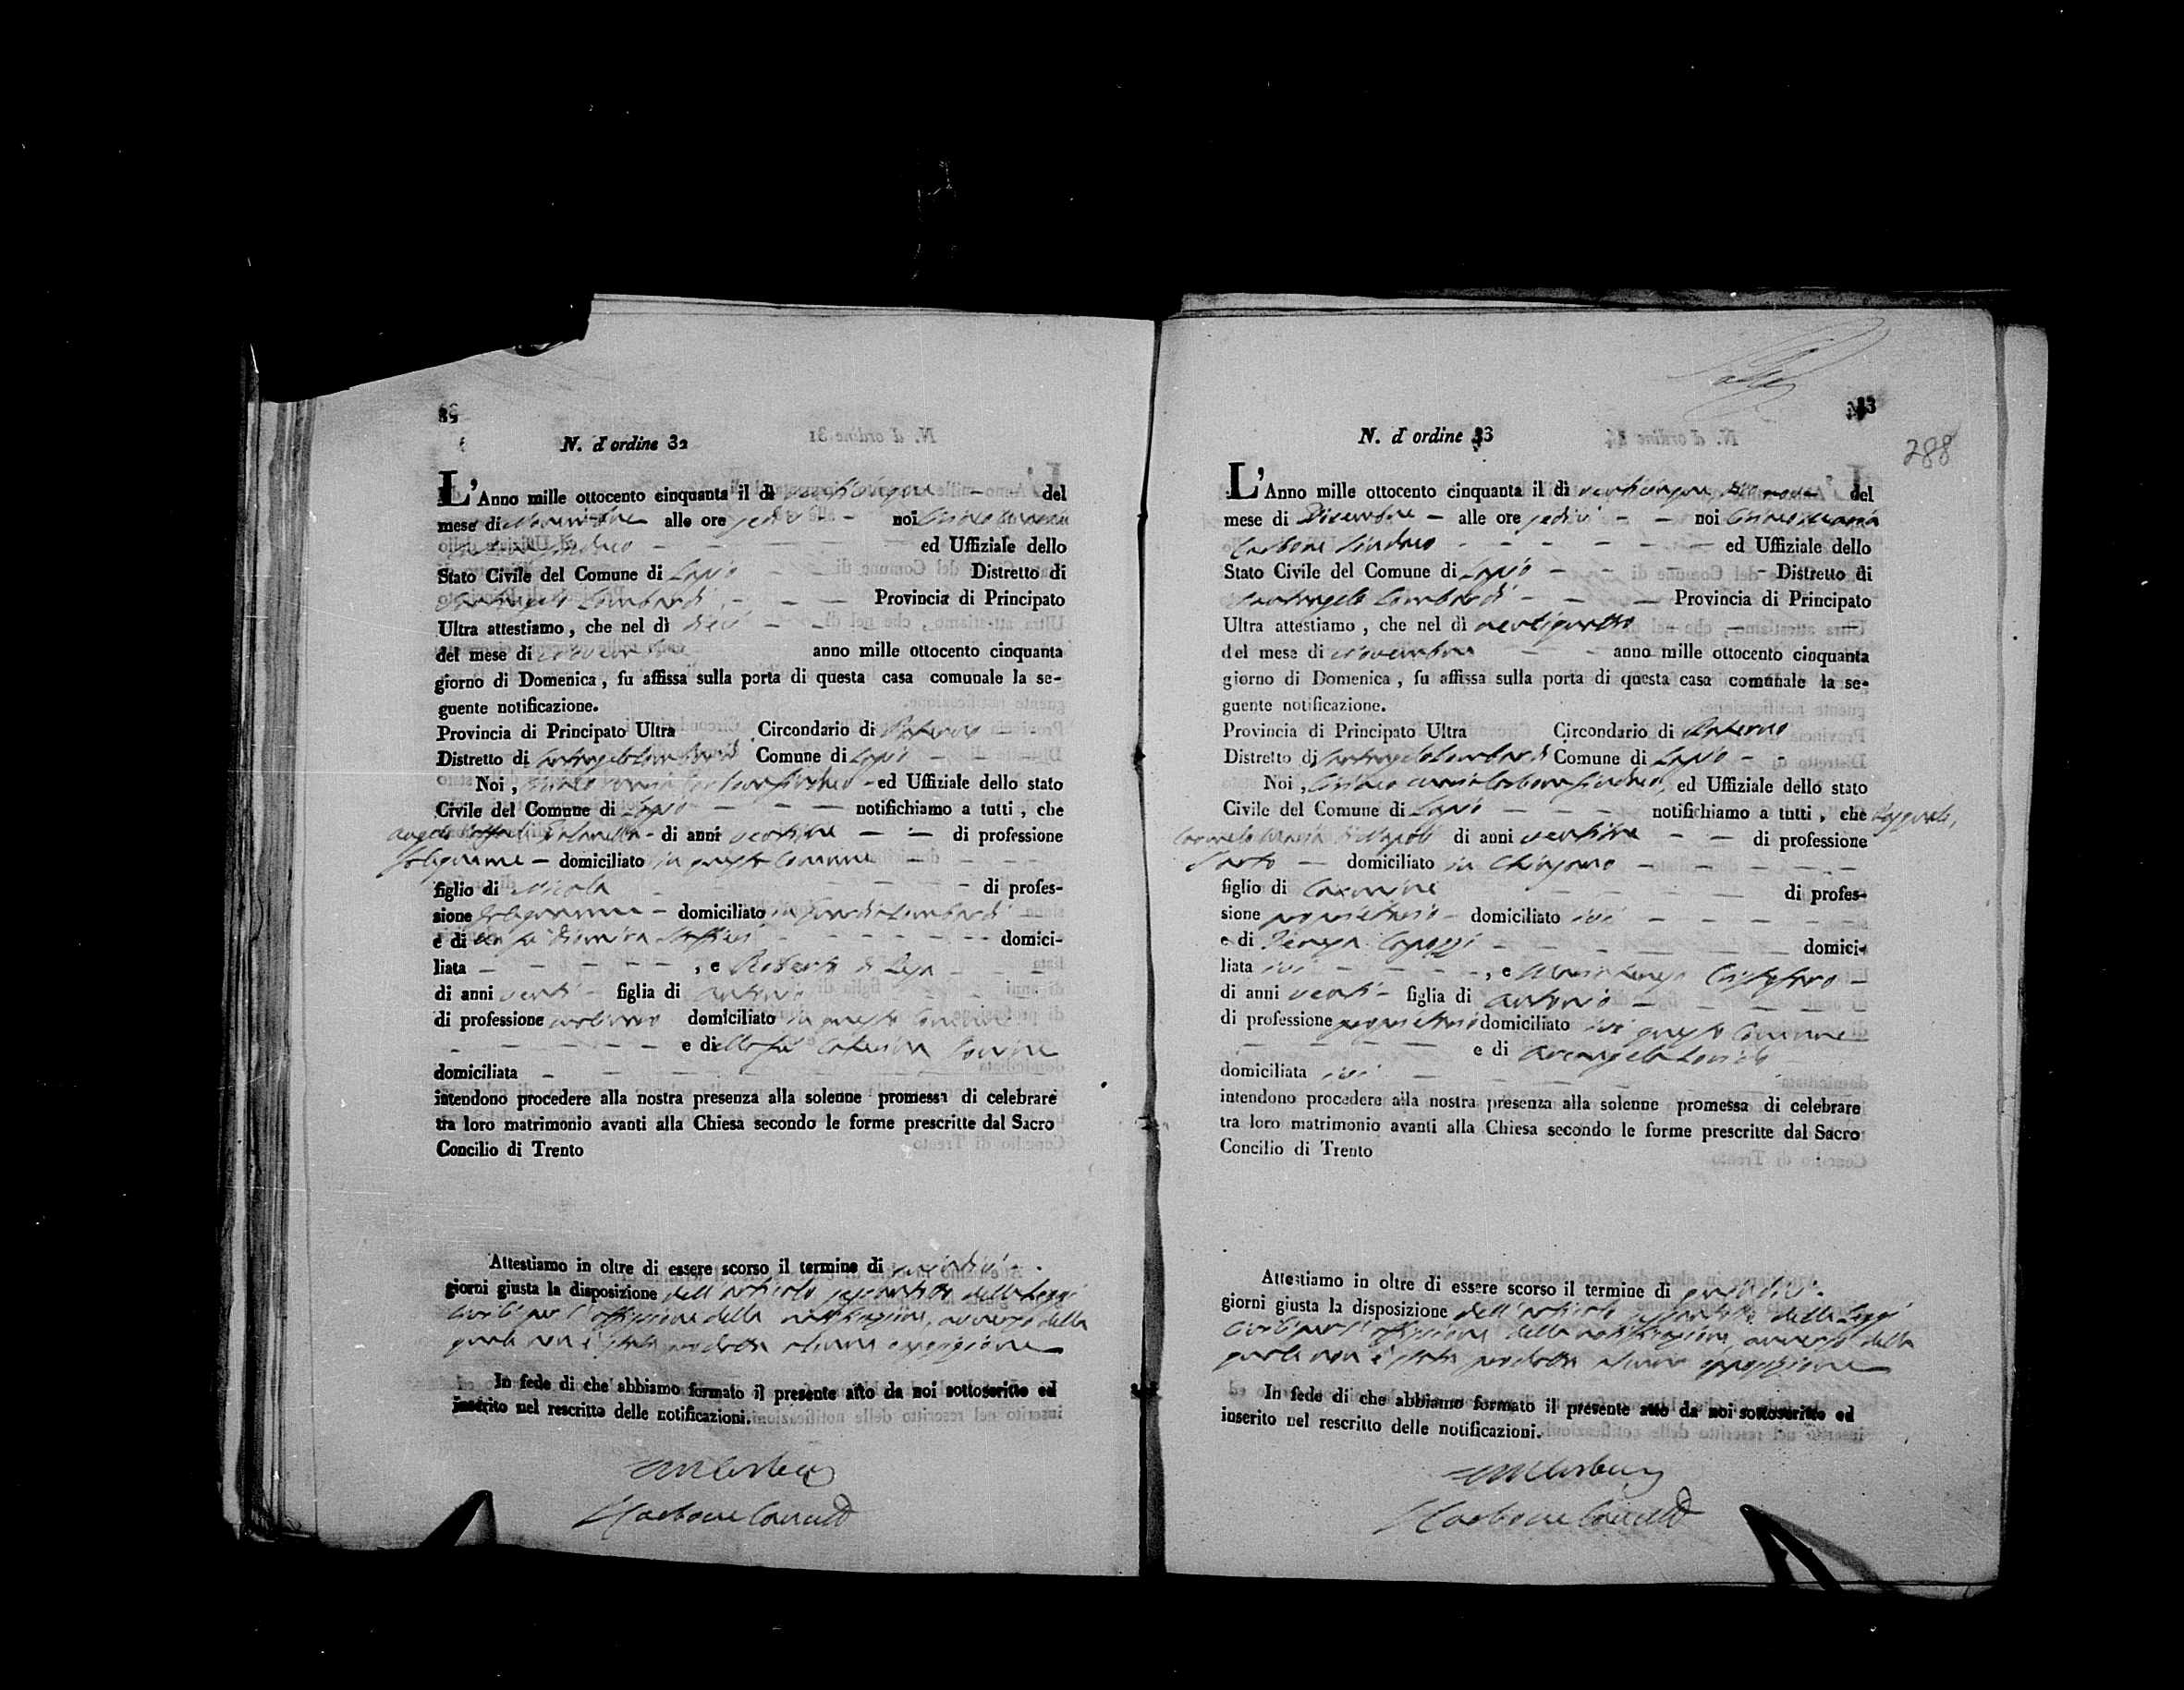 N. d'ordine 32
L'Anno mille ottocento cinquanta il dì venticinque del
mese di Novembre alle ore sedici noi
Sindaco ed Uffiziale dello
Stato Civile del Comune di Lapio Distretto di
Santangelo Lombardi Provincia di Principato
Ultra attestiamo, che nel dì dieci
del mese di Novembre anno mille ottocento cinquanta
giorno di Domenica, fu affissa sulla porta di questa casa comunale la se-
guente notificazione.
Provincia di Principato Ultra Circondario di Paterno
Distretto di Santangelo Lombardi Comune di Lapio
Noi, ed Uffiziale dello stato
Civile del Comune di Lapio notifichiamo a tutti, che
di anni ventitre di professione
falegname domiciliato in questo Comune
figlio di Nicola di profes-
sione falegname domiciliato in Guardia Lombardi
e di domici-
liata , e Roberta di
di anni venti figlia di Antonio
di professione domiciliato in questo Comune
e di della fu Caterina
domiciliata
intendono procedere alla nostra presenza alla solenne promessa di celebrare
tra loro matrimonio avanti alla Chiesa secondo le forme prescritte dal Sacro
Concilio di Trento
Attestiamo in oltre di essere scorso il termine di quindici
giorni giusta la disposizione dell'articolo sessantotto delle Leggi
Civili per l'affissione della notificazione, avverso della
quale non è stata prodotta alcuna opposizione
In fede di che abbiamo formato il presente atto da noi sottoscritto ed
inserito nel rescritto delle notificazioni.
33
288
N. d'ordine 33
L'Anno mille ottocento cinquanta il dì del
mese di Dicembre alle ore sedici noi
Carbone Sindaco ed Uffiziale dello
Stato Civile del Comune di Lapio Distretto di
Santangelo Lombardi Provincia di Principato
Ultra attestiamo, che nel dì ventiquattro
del mese di Novembre anno mille ottocento cinquanta
giorno di Domenica, fu affissa sulla porta di questa casa comunale la se-
guente notificazione.
Provincia di Principato Ultra Circondario di Paterno
Distretto di Santangelo Lombardi Comune di Lapio
Noi, Carbone Sindaco, ed Uffiziale dello stato
Civile del Comune di Lapio notifichiamo a tutti, che
di anni ventitre di professione
Sarto domiciliato in
figlio di Carmine di profes-
sione proprietario domiciliato ivi
e di Teresa Capozzi domici-
liata ivi , e Maria Teresa
di anni venti figlia di Antonio
di professione proprietario domiciliato in questo Comune
e di Arcangela
domiciliata ivi
intendono procedere alla nostra presenza alla solenne promessa di celebrare
tra loro matrimonio avanti alla Chiesa secondo le forme prescritte dal Sacro
Concilio di Trento
Attestiamo in oltre di essere scorso il termine di quindici
giorni giusta la disposizione dell'articolo sessantotto delle Leggi
Civili per l'affissione della notificazione, avverso della
quale non è stata prodotta alcuna opposizione
In fede di che abbiamo formato il presente atto da noi sottoscritto ed
inserito nel rescritto delle notificazioni.